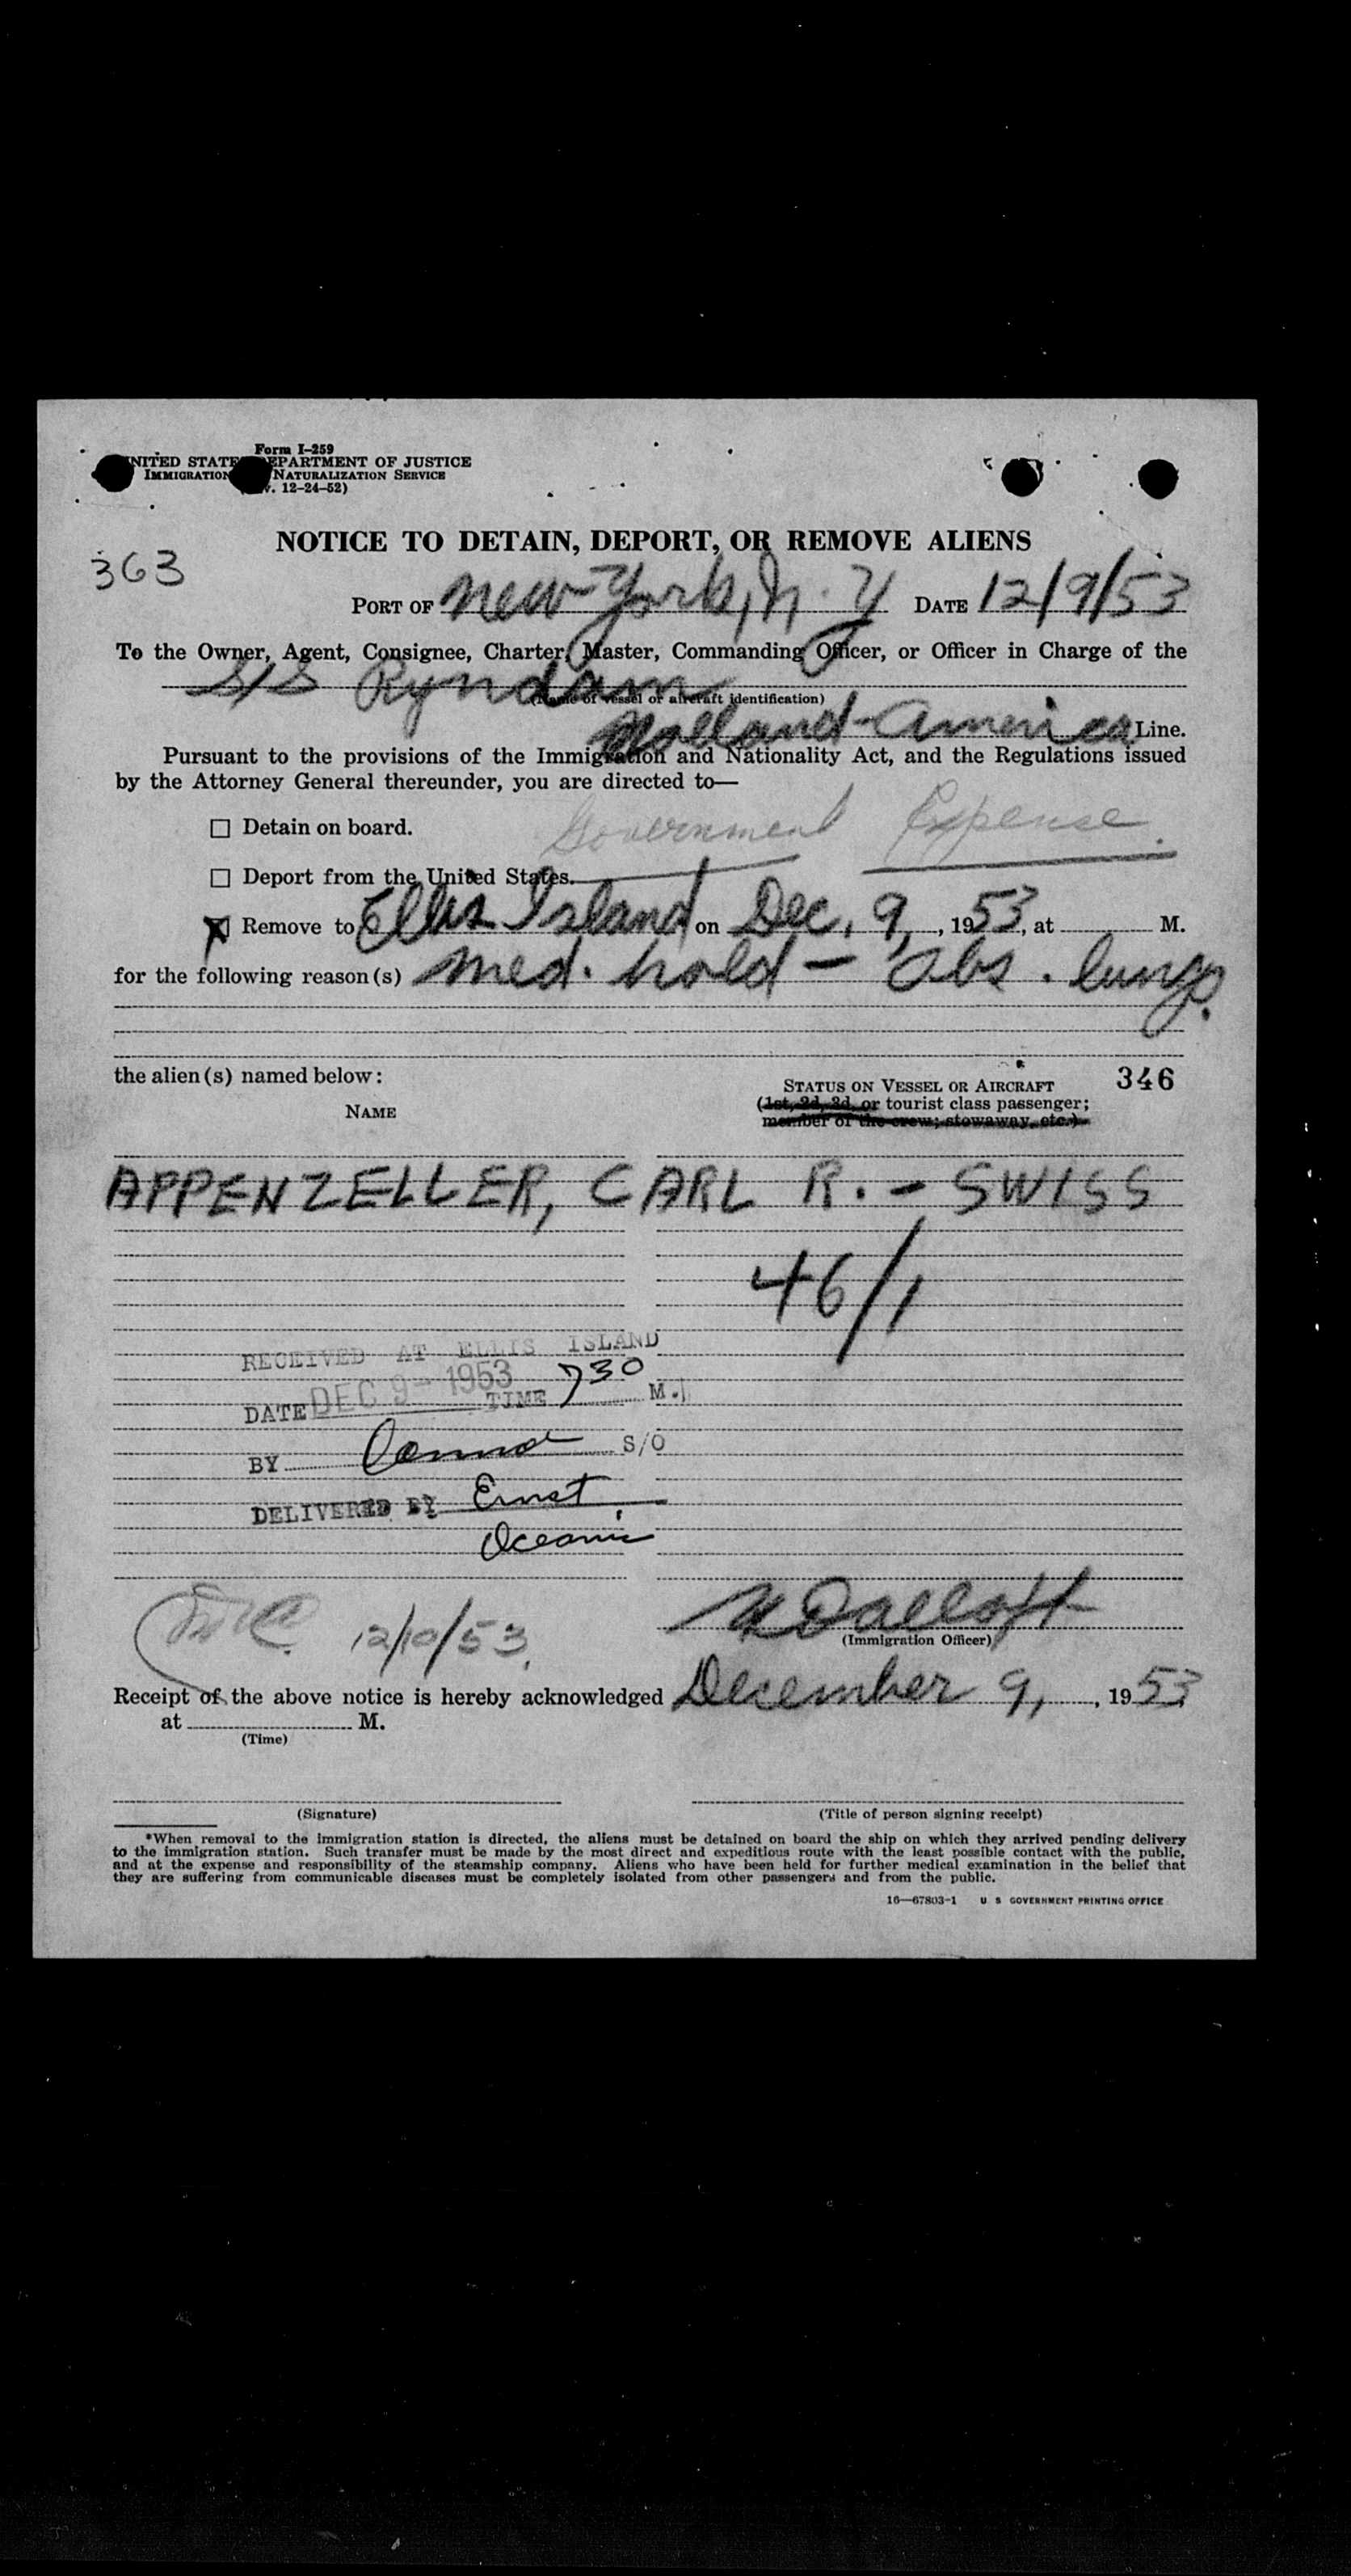 Form I-259
UNITED STATES DEPARTMENT OF JUSTICE
IMMIGRATION NATURALIZATION SERVICE
12-24-52)
NOTICE TO DETAIN, DEPORT, OR REMOVE ALIENS
363
PORT OF New York, N.Y DATE 12/9/53
To the Owner, Agent, Consignee, Charter, Master, Commanding Officer, or Officer in Charge of the
S/S Ryndam
(Name of vessel or aircraft identification)
Holland-America Line.
Pursuant to the provisions of the Immigration and Nationality Act, and the Regulations issued
by the Attorney General thereunder, you are directed to—
Government Expense.
☐ Detain on board.
☐ Deport from the United States.
☒ Remove to Ellis Island on Dec. 9, , 1953, at M.
for the following reason(s) med. hold - Obs. lungs.
the alien(s) named below:
STATUS ON VESSEL OR AIRCRAFT 346
NAME
(1st, 2d, 3d, or tourist class passenger;
member of the crew; stowaway, etc.)
APPENZELLER, CARL R. - SWISS
46/1
RECEIVED AT ELLIS ISLAND
DATE DEC 9 - 1953 TIME 730 M.
BY S/O
DELIVERED BY Ernst
Oceanic
12/10/53.
(Immigration Officer)
Receipt of the above notice is hereby acknowledged December 9, , 1953
at M.
(Time)
(Signature) (Title of person signing receipt)
*When removal to the immigration station is directed, the aliens must be detained on board the ship on which they arrived pending delivery
to the immigration station. Such transfer must be made by the most direct and expeditious route with the least possible contact with the public,
and at the expense and responsibility of the steamship company. Aliens who have been held for further medical examination in the belief that
they are suffering from communicable diseases must be completely isolated from other passengers and from the public.
16—67803-1 U S GOVERNMENT PRINTING OFFICE